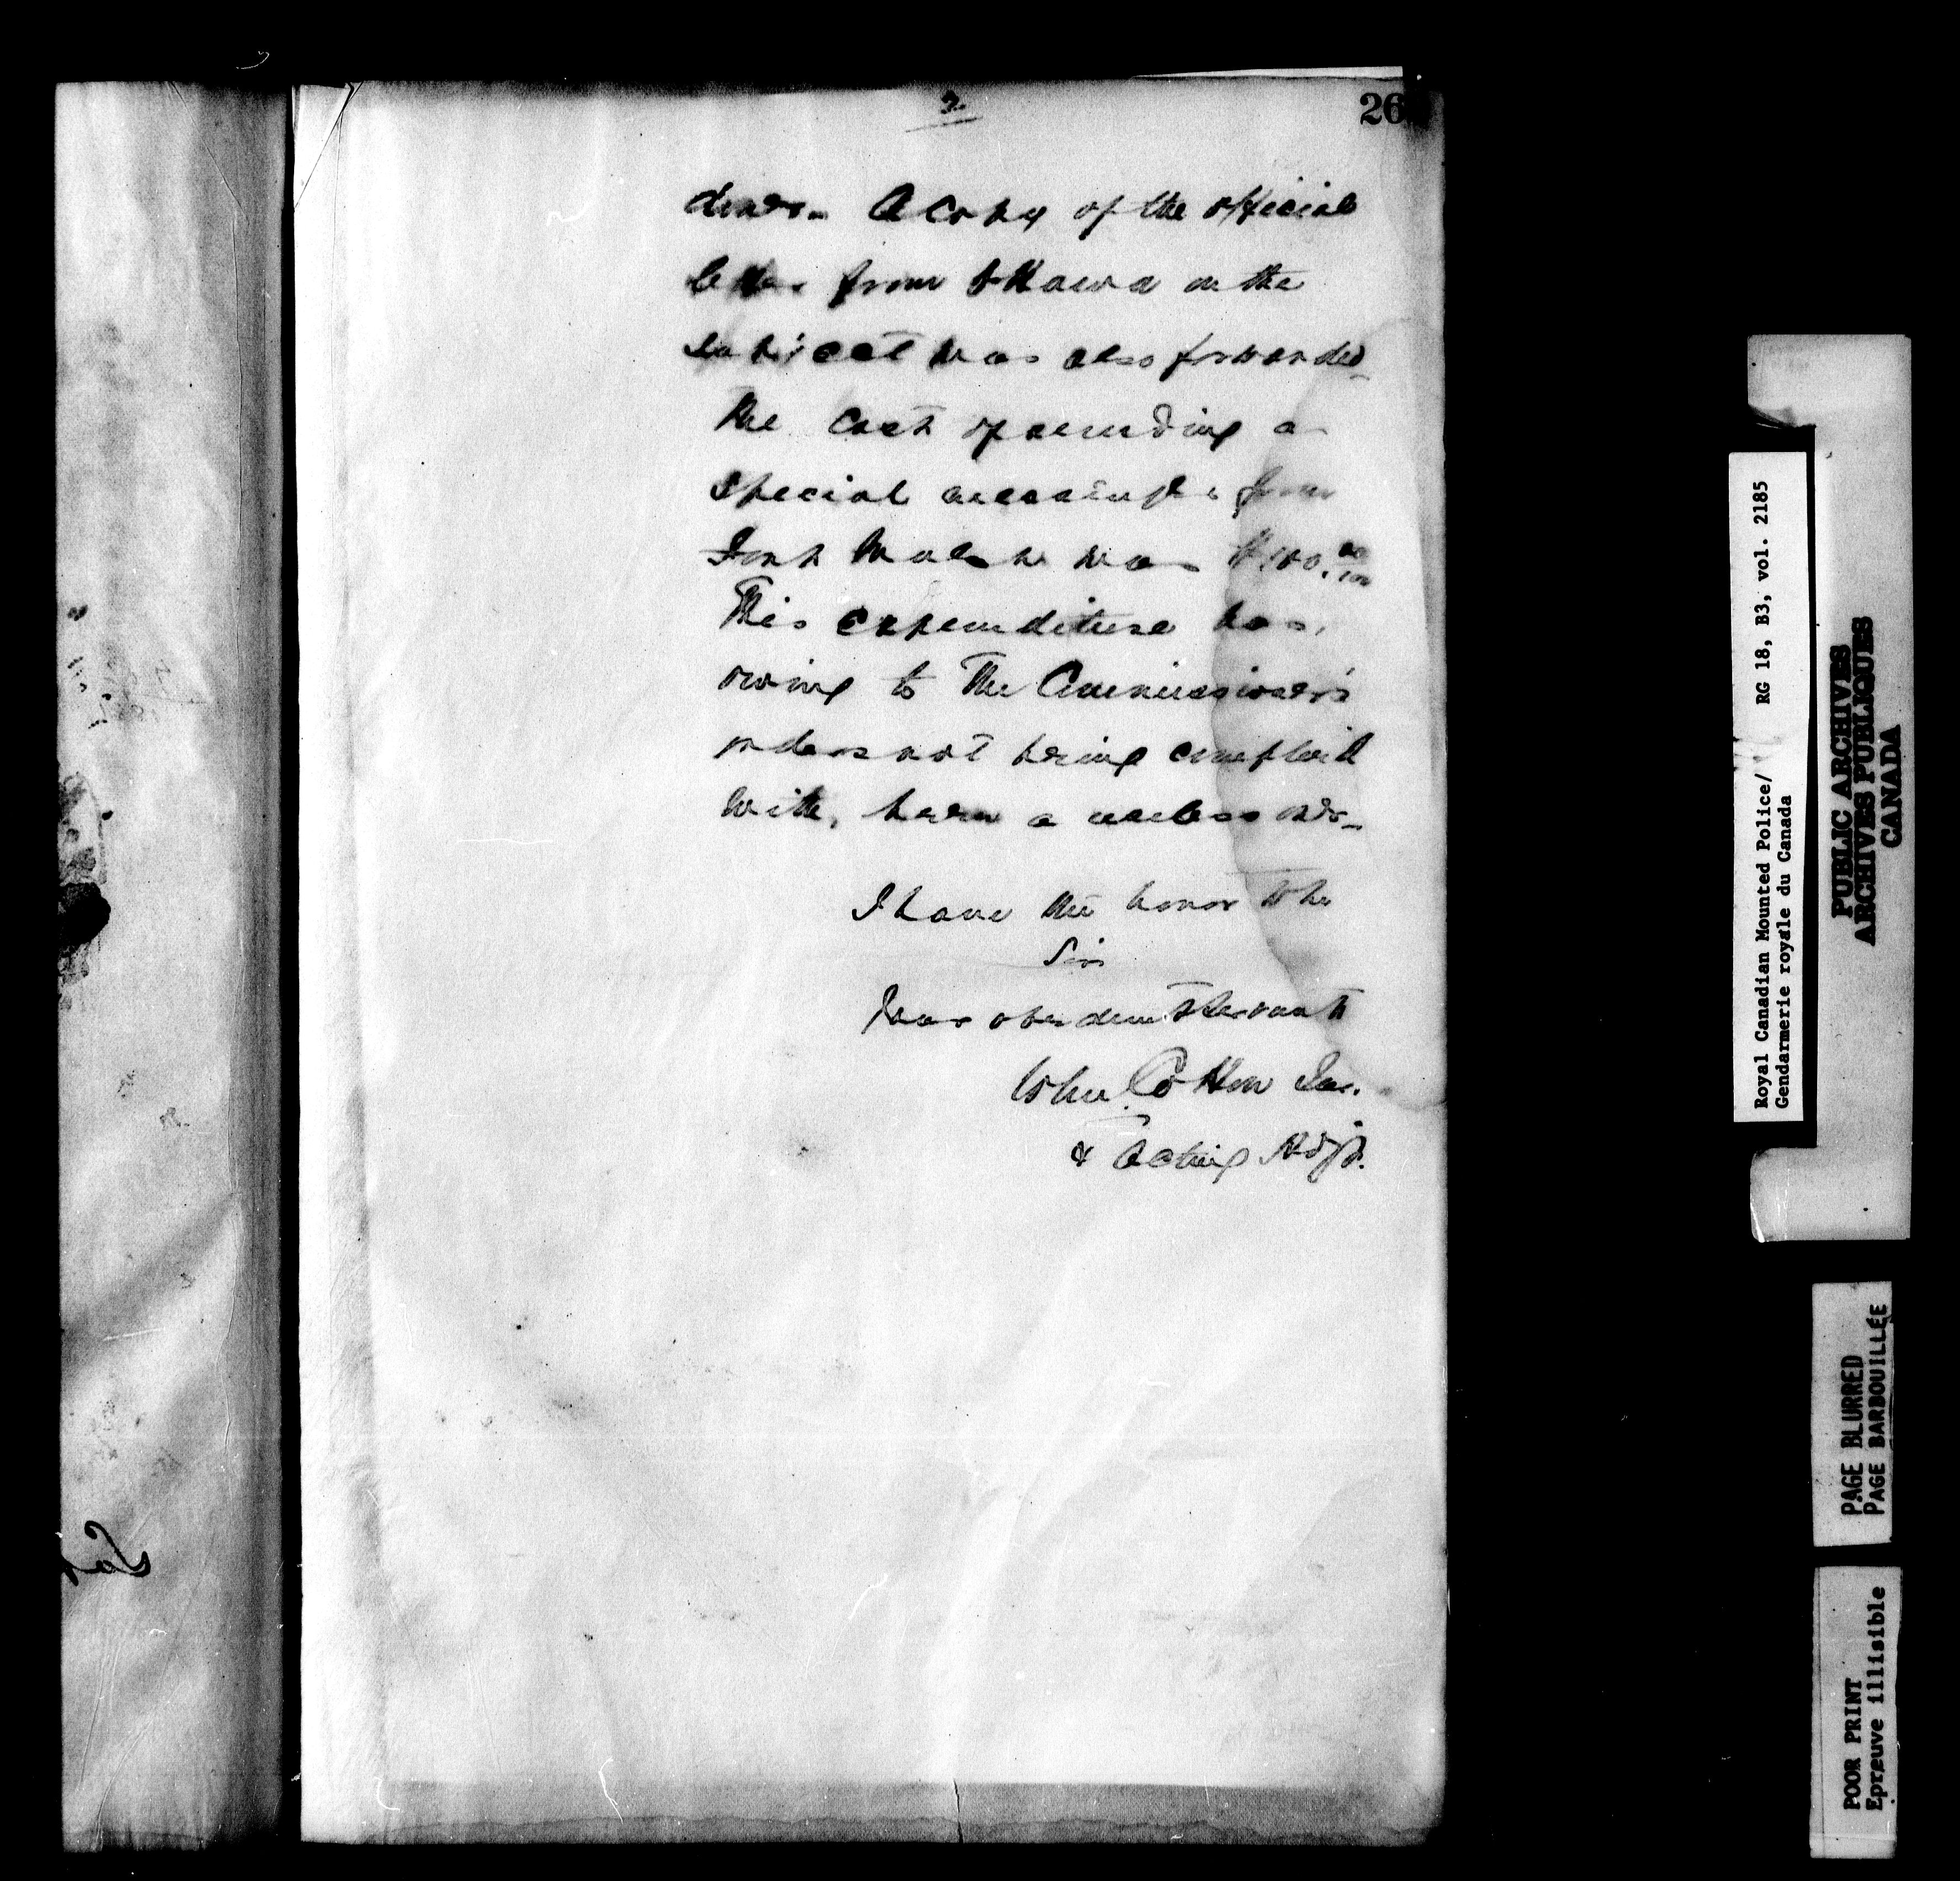 2
26
A copy of the official
letter from Ottawa on the
subject was also forwarded
The cost of sending a
special messenger from
Fort Walsh was $100.00/100
This expenditure has,
owing to The Commissioner's
orders not being complied
with, been a useless one_
I have the honor to be
Sir
Your obedient Servant
John Cotton Ins.
& Acting Adjt.
Royal Canadian Mounted Police/ RG 18, B3, vol. 2185
Gendarmerie royale du Canada
PUBLIC ARCHIVES
ARCHIVES PUBLIQUES
CANADA
PAGE BLURRED
PAGE BARBOUILLÉE
POOR PRINT
Epreuve illisible